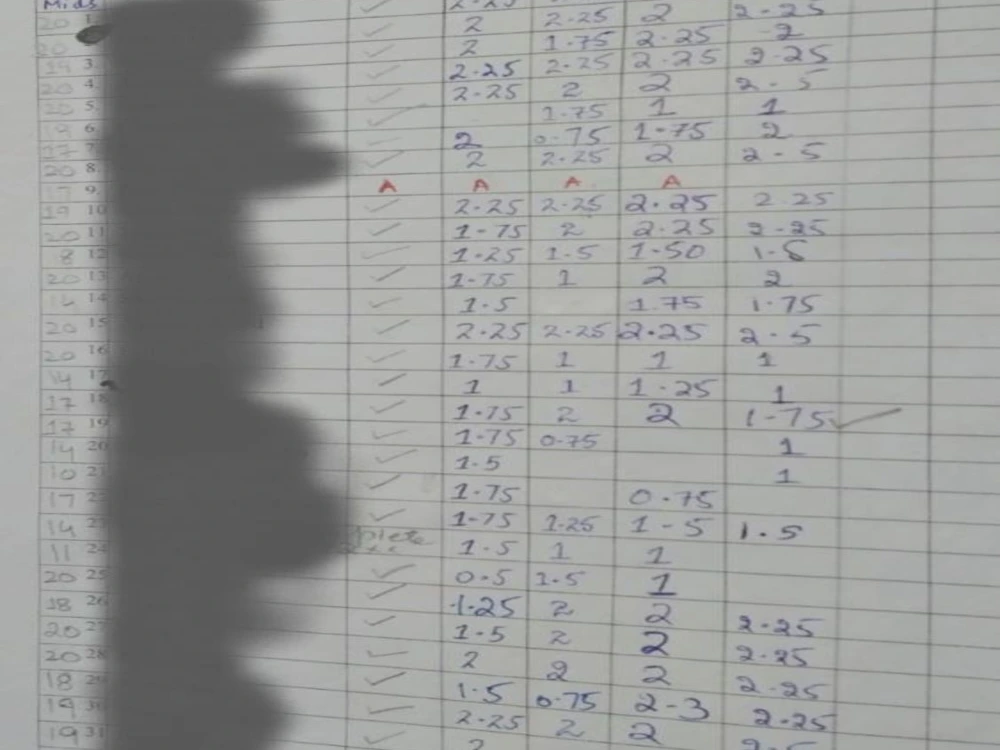 Mids 2.25
20 1 ✓ 2 2.25 2 2-25
20 ✓ 2 1.75 2.25 2
19 3 ✓ 2.25 2.25 2.25 2.25
20 4 ✓ 2.25 2 2 2-5
20 5 ✓ 1.75 1 1
19 6 ✓ 2 0.75 1.75 2
17 7 ✓ 2 2.25 2 2-5
20 8
17 9 A A A A
19 10 ✓ 2.25 2.25 2.25 2.25
20 11 ✓ 1-75 2 2.25 2-25
8 12 ✓ 1.25 1.5 1-50 1.5
20 13 ✓ 1-75 1 2 2
14 14 ✓ 1.5 1.75 1.75
20 15 ✓ 2.25 2.25 2.25 2-5
20 16 ✓ 1.75 1 1 1
14 17 ✓ 1 1 1.25 1
17 18 ✓ 1.75 2 2 1-75 ✓
17 19 ✓ 1.75 0.75 1
14 20 ✓ 1.5 1
10 21 ✓ 1.75 0.75
17 22 ✓ 1-75 1.25 1-5 1.5
14 23 1.5 1 1
11 24 ✓ 0.5 1.5 1
20 25 ✓ 1.25 2 2 2.25
18 26 ✓ 1-5 2 2 2.25
20 27 ✓ 2 2 2 2.25
20 28 ✓ 1.5 0.75 2-3 2.25
18 29 ✓ 2.25 2 2
19 30 ✓ 2
19 31